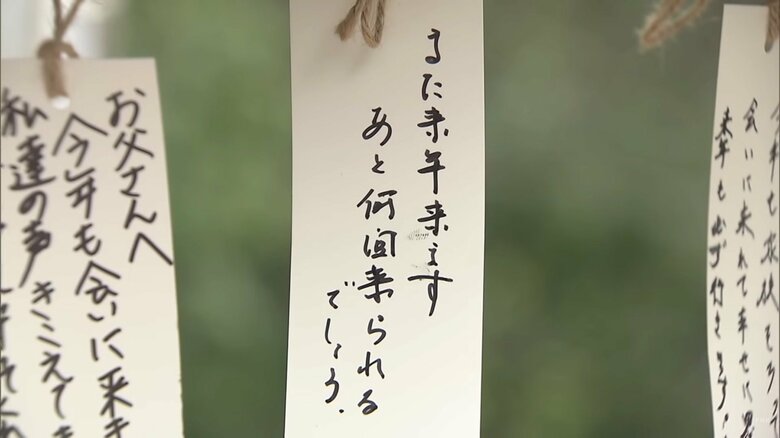 会いに来れて幸せに
来年も必ず行きます!
また来年来ます
あと何回来られる
でしょう.
お父さんへ
今年も会いに来き
私達の声きこえて